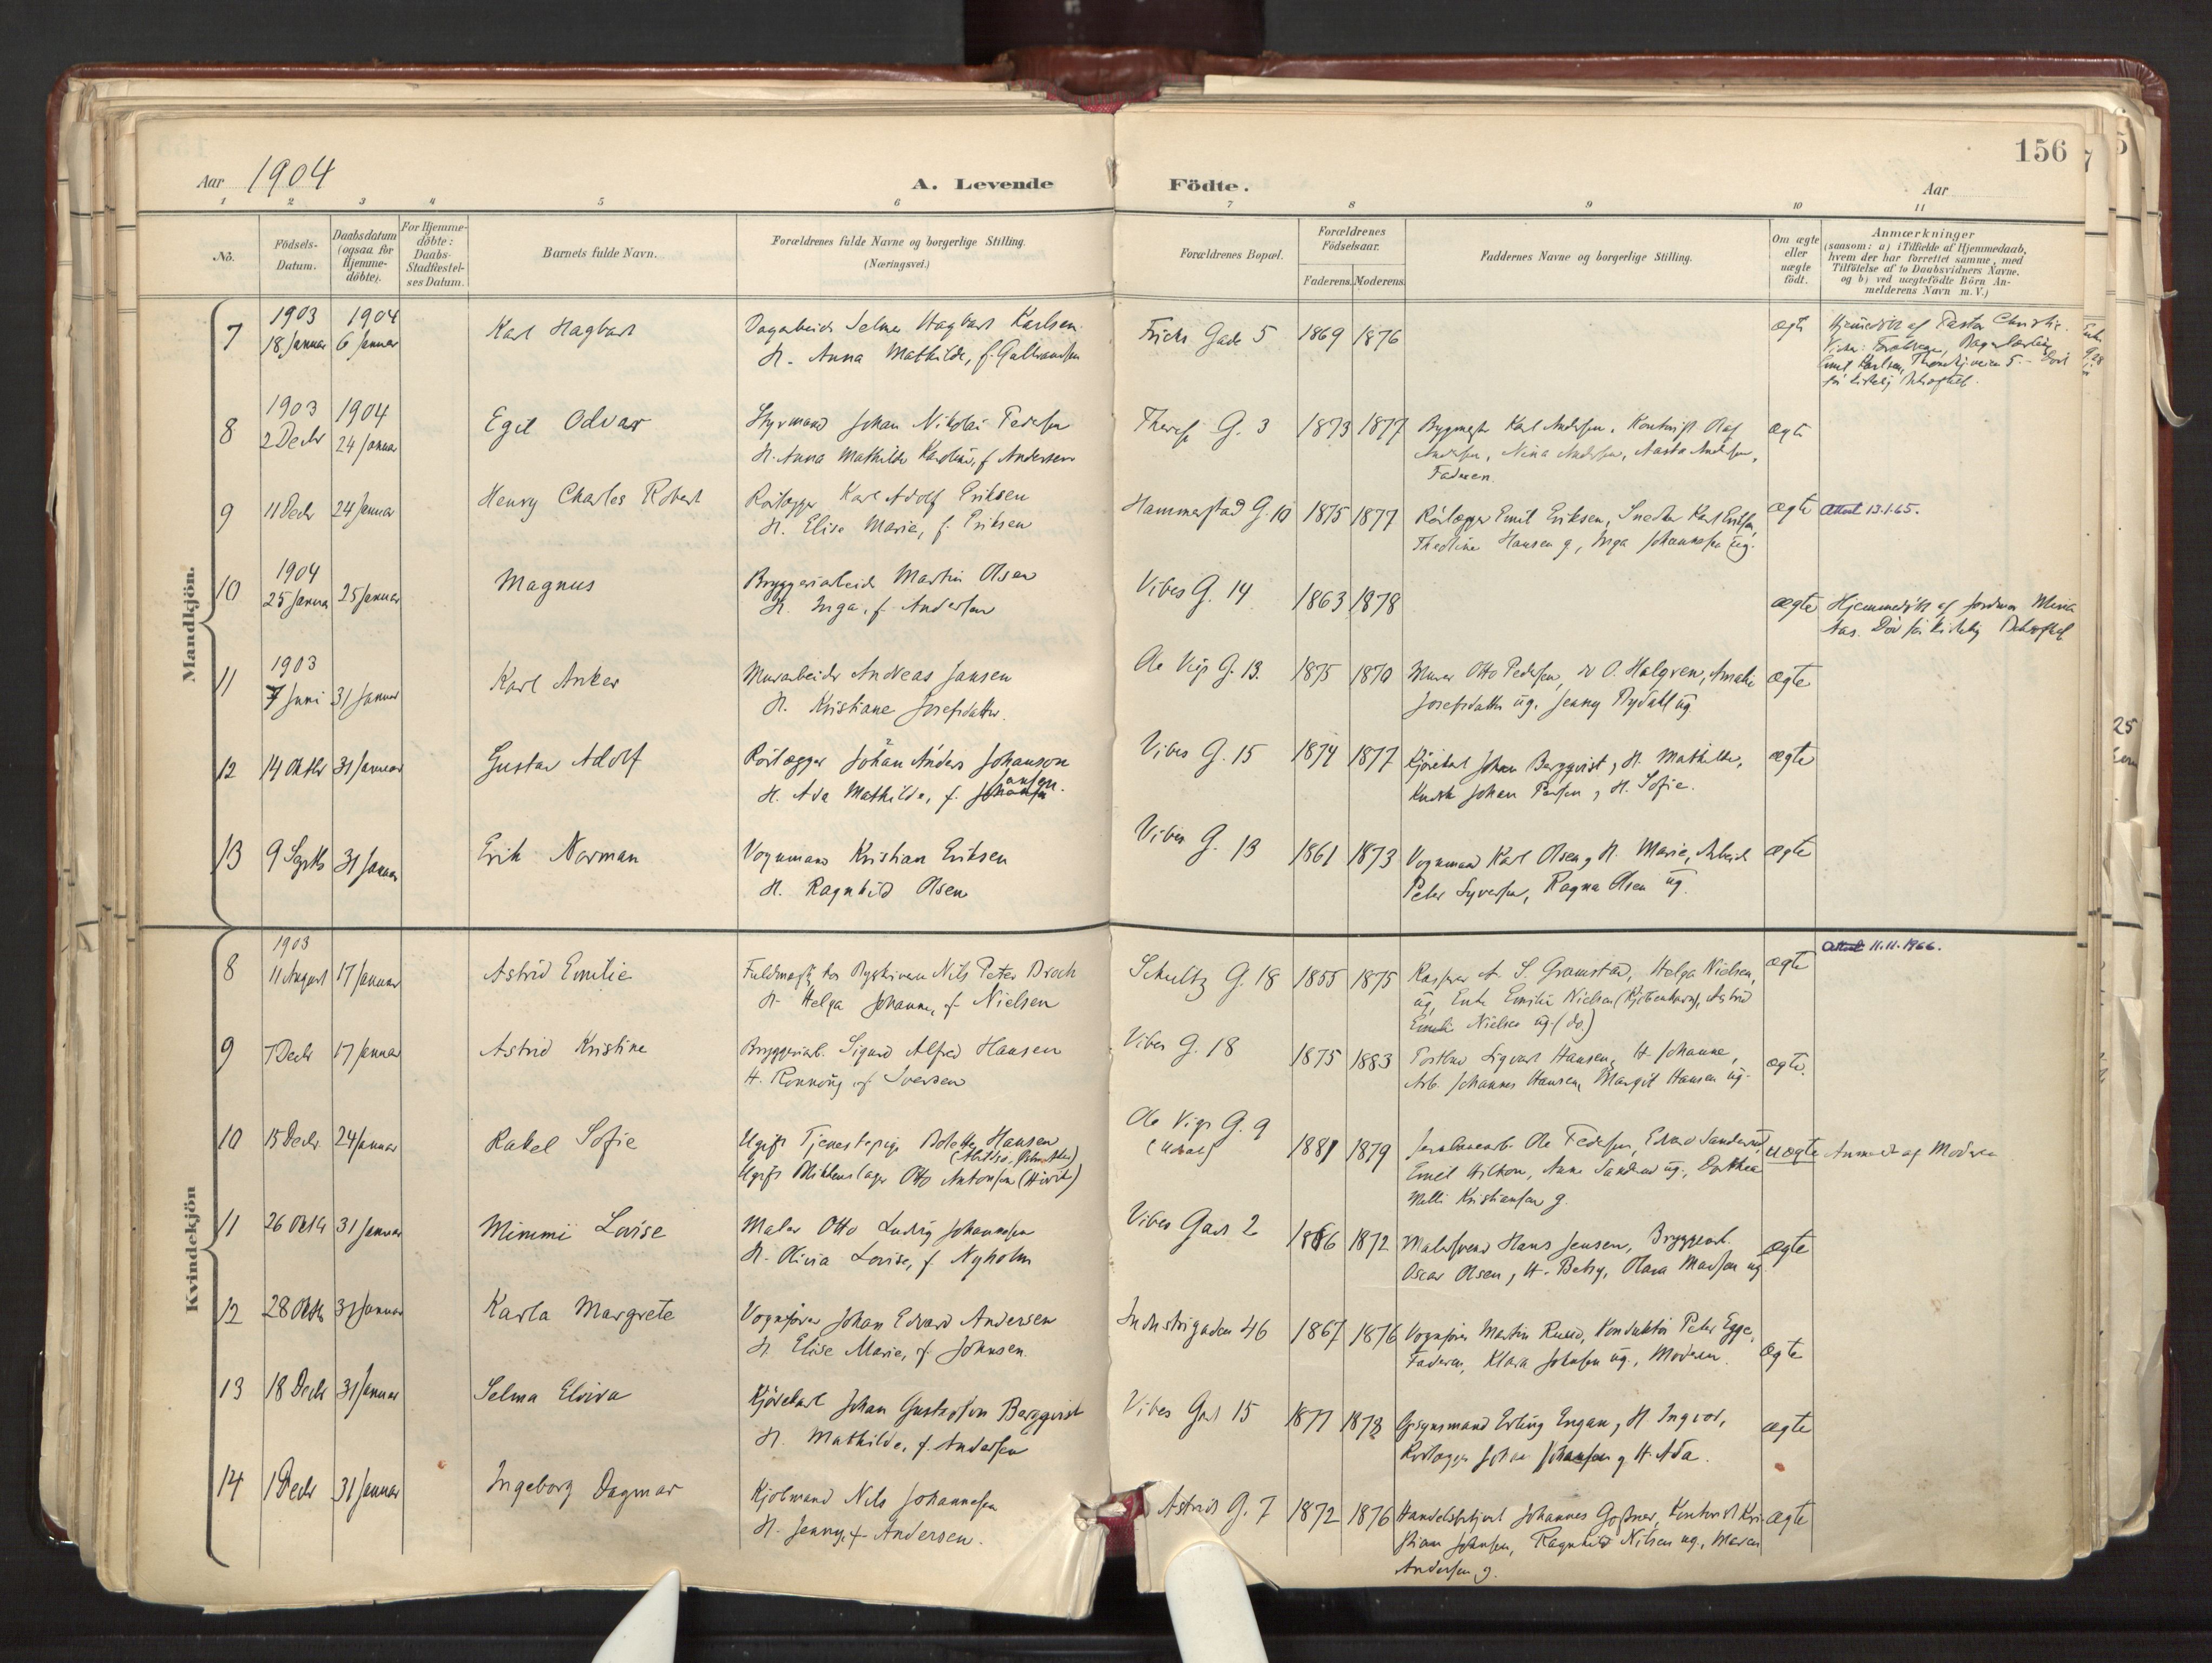 156
Aar 1904
A. Levende Födte.
Aar
1 2 3 4 5 6 7 8 9 10 11
No.
Födsels-
Datum.
Daabsdatum
(ogsaa for
Hjemme-
döbte).
For Hjemme-
döbte:
Daabs-
Stadfæstel-
ses Datum.
Barnets fulde Navn.
Forældrenes fulde Navne og borgerlige Stilling.
(Næringsvei.)
Forældrenes Bopæl.
Forældrenes
Födselsaar.
Faderens. Moderens.
Faddernes Navne og borgerlige Stilling.
Om ægte
eller
uægte
födt.
Anmærkninger
(saasom: a) i Tilfælde af Hjemmedaab,
hvem der har forrettet samme, med
Tilföielse af to Daabsvidners Navne,
og b) ved uægtefödte Börn An-
melderens Navn m. V.)
Mandkjön.
7
1903 1904
18 Januar 6 Januar
Karl Hagbart
Dagarbeider Selmer Hagbart Karlsen
H. Anna Mathilde, f.
Gade 5
1869 1876
ægte
Hjemmedöbt af Pastor Christie.
Emil Karlsen,
8
1903 1904
2 Decbr 24 Januar
Egil Odvar
Styrmand Johan Nikolai Pedersen
H. Anna Mathilde Karoline, f. Andersen
Therese G. 3
1873 1877
Bygmester Karl Andersen, Kontorist Olaf
Andersen, Nina Andersen, Aasta Andersen,
Faderen.
ægte
9
11 Decbr 24 Januar
Henry Charles Robert
Rörlægger Karl Adolf Eriksen
H. Elise Marie, f. Eriksen
Hammerstad G. 10
1875 1877
Rörlægger Emil Eriksen, Snedker Karl Eriksen,
Hansen g., Inga Johannesen ug.
ægte
Attest 13.1.65.
10
1904
25 Januar 25 Januar
Magnus
Bryggeriarbeider Martin Olsen
H. Inga, f. Andersen
Vibes G. 14
1863 1878
ægte
Hjemmedöbt af Jordmor Mina
Aas. Död för kirkelig Bekræftelse
11
1903
7 Juni 31 Januar
Karl Anker
Murarbeider Andreas Jansen
H. Kristiane Josefsdatter.
Ole Vigs G. 13.
1875 1870
Murer Otto Pedersen, do O. Halgren, Amalie
Josefsdatter ug. Jenny Rydahl ug.
ægte
12
14 Oktbr 31 Januar
Gustav Adolf
Rörlægger Johan Anders Johanson
H. Ada Mathilde, f. Jansen.
Vibes G. 15
1874 1877
Kjörekarl Johan Bergqvist, H. Mathilde,
Kudsk Johan Persen, H. Sofie.
ægte
13
9 Septb 31 Januar
Erik Norman
Vognmand Kristian Eriksen
H. Ragnhild Olsen
Vibes G. 13
1861 1873
Vognmand Karl Olsen, H. Marie, Arbeider
Peter Syversen, Ragna Olsen ug.
ægte
Kvindekjön
8
1903
11 August 17 Januar
Astrid Emilie
Fuldmægtig hos Byskriveren Nils Peter Broch
H. Helga Johanne, f. Nielsen
Schultz G. 18
1855 1875
Kasserer A. S. Gramstad, Helga Nielsen
ug, Enke Emilie Nielsen (Kjöbenhavn), Astrid
Emilie Nielsen ug. (do.)
ægte
Attest 11.11.1966.
9
7 Decbr 17 Januar
Astrid Kristine
Bryggeriarb. Sigurd Alfred Hansen
H. Ronnoug, f. Iversen
Vibes G. 18
1875 1883
Postbud Sigvart Hansen, H. Johanne,
Arb. Johannes Hansen, Margit Hansen ug.
ægte.
10
15 Decbr 24 Januar
Rakel Sofie
Ugift Tjenestepige Bolette Hansen
Ugift Blikkenslager Otto Antonsen
Ole Vigs G. 9
1881 1879
Jernbanearb. Ole Pedersen, Edvard Sanderud,
Emil Hilton, Anna Sanderud ug., Dorthea
Milli Kristiansen g.
uægte
Anmeldt af Moderen
11
26 Oktbr 31 Januar
Mimmi Lovise
Maler Otto Ludvig Johannesen
H. Olivia Lovise, f. Nyholm
Vibes Gade 2
1866 1872
Malersvend Hans Jensen, Bryggeriarb.
Oscar Olsen, H. Betsy, Olava Madsen ug
ægte
12
28 Oktb 31 Januar
Karla Margrete
Vognfører Johan Edvard Andersen
H. Elise Marie, f. Johnsen.
Industrigaden 46
1867 1876
Vognfører Martin Ruud, Konduktör Peter Egge,
Faderen, Klara Johnsen ug., Moderen.
ægte
13
18 Decbr 31 Januar
Selma Elvira
Kjörekarl Johan Gustafson Bergqvist
H. Mathilde, f. Andersen
Vibes Gad 15
1877 1878
Gesynsmand Erling Engan, H. Ingvor,
Rörlægger Johan Johansen, H. Ada.
ægte
14
1 Decbr 31 Januar
Ingeborg Dagmar
Kjolmand Nils Johannesen
H. Jenny, f. Andersen.
Astrids G. 7
1872 1876
Handelsbetjent Johannes Gossner, Kontorist Kri-
stian Johnsen, Ragnhild Nilsen ug., Maren
Andersen g.
ægte